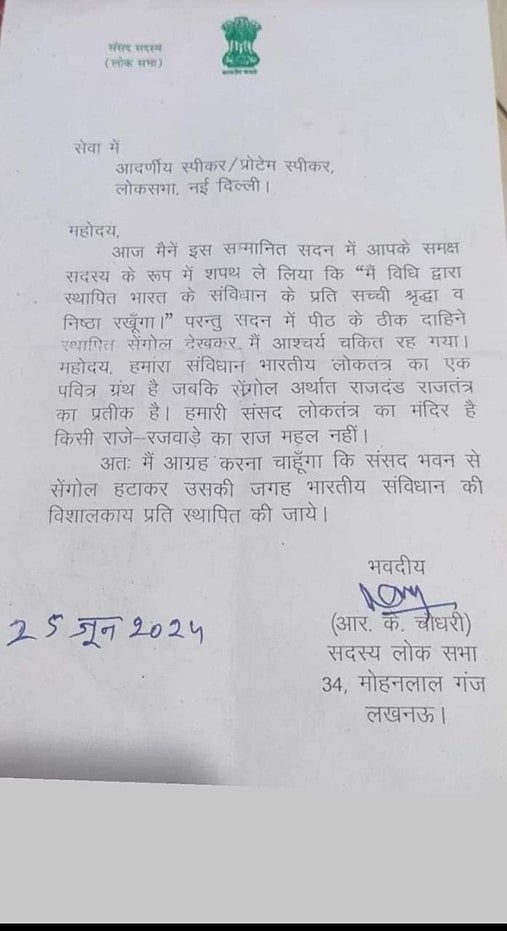 संसद सदस्य
(लोक सभा)
सेवा में
आदर्णीय स्पीकर/प्रोटेम स्पीकर,
लोकसभा, नई दिल्ली।
महोदय,
आज मैनें इस सम्मानित सदन में आपके समक्ष
सदस्य के रूप में शपथ ले लिया कि “मैं विधि द्वारा
स्थापित भारत के संविधान के प्रति सच्ची श्रृद्धा व
निष्ठा रखूँगा।” परन्तु सदन में पीठ के ठीक दाहिने
स्थापित सेंगोल देखकर मैं आश्चर्य चकित रह गया।
महोदय, हमांरा संविधान भारतीय लोकतंत्र का एक
पवित्र ग्रंथ है जबकि सेंगोल अर्थात राजदंड राजतंत्र
का प्रतीक है। हमारी संसद लोकतंत्र का मंदिर है
किसी राजे–रजवाड़े का राज महल नहीं।
अतः मैं आग्रह करना चाहूँगा कि संसद भवन से
सेंगोल हटाकर उसकी जगह भारतीय संविधान की
विशालकाय प्रति स्थापित की जाये।
भवदीय
(आर. के. चौधरी)
सदस्य लोक सभा
34, मोहनलाल गंज
लखनऊ।
25 जून 2024